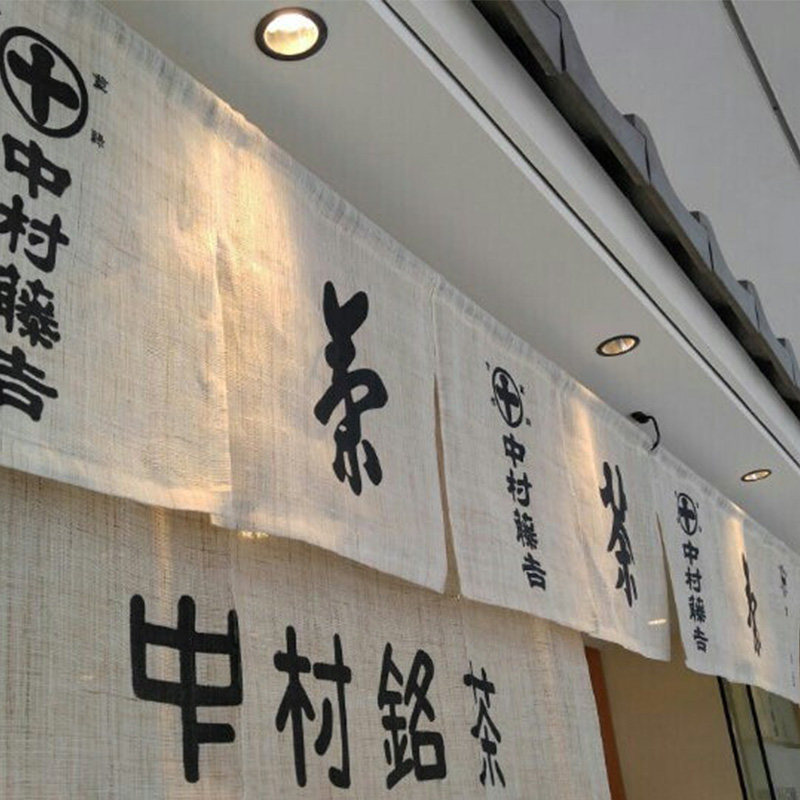 登録
中村藤吉
茶
中村藤吉
茶
中村藤吉
茶
中村銘茶